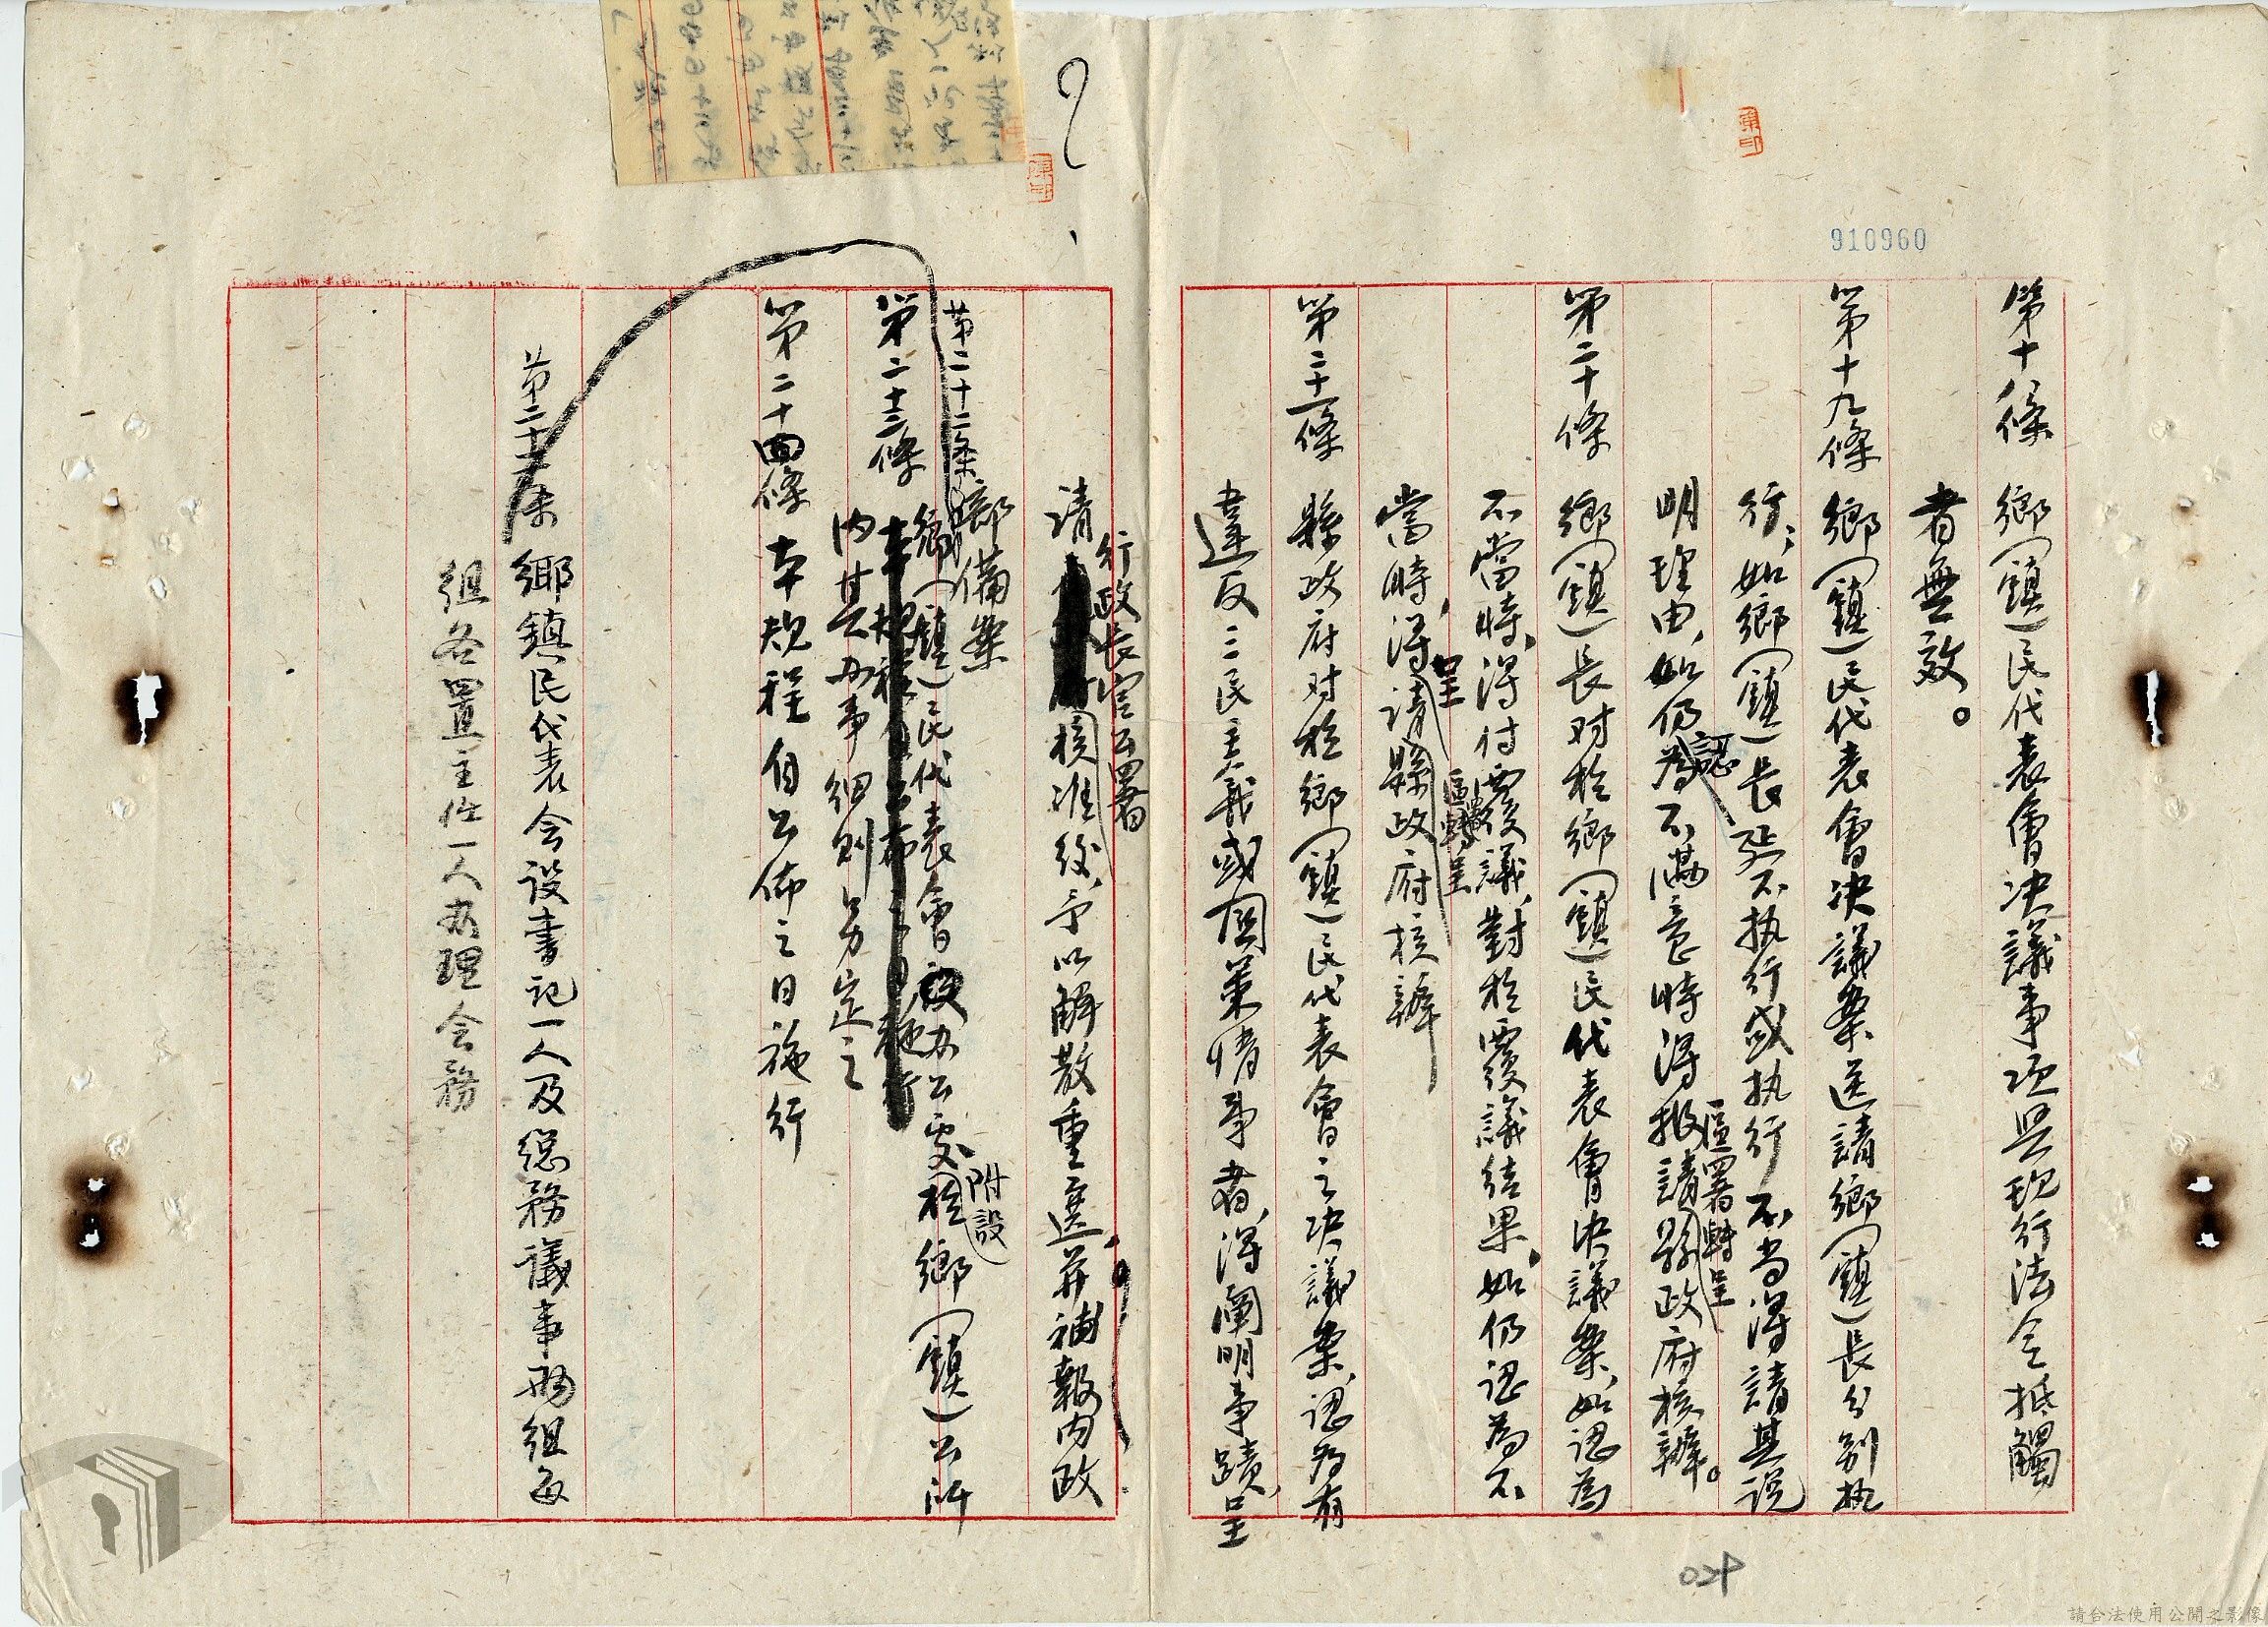 910960
第十八條 鄉(鎮)民代表會決議事項與現行法令抵觸
者無效。
第十九條 鄉(鎮)民代表會決議案送請鄉(鎮)長分別執
行,如鄉(鎮)長延不执行或执行不当得請其說
明理由,如仍為不滿意時得报請縣政府核辦。
認
區署轉呈
第二十條 鄉(鎮)長对於鄉(鎮)民代表會決議案,如認為
不當時,得付覆議,對於覆議結果,如仍認為不
當時,得請縣政府核辦
呈
區署轉呈
第二十一條 縣政府对於鄉(鎮)民代表會之決議案,認為有
違反三民主義或國策情事者,得闡明事蹟,呈
請核准後,予以解散重選,并補報內政
行政長官公署
部備案
第二十二條 鄉(鎮)民代表會設办公處於鄉(鎮)公所
附設
內其办事細則另定之
第二十三條
第二十四條 本規程自公佈之日施行
第二十條 鄉鎮民代表会设書記一人及總務議事兩組每
組各置主任一人办理会務
024
請合法使用公開之影像